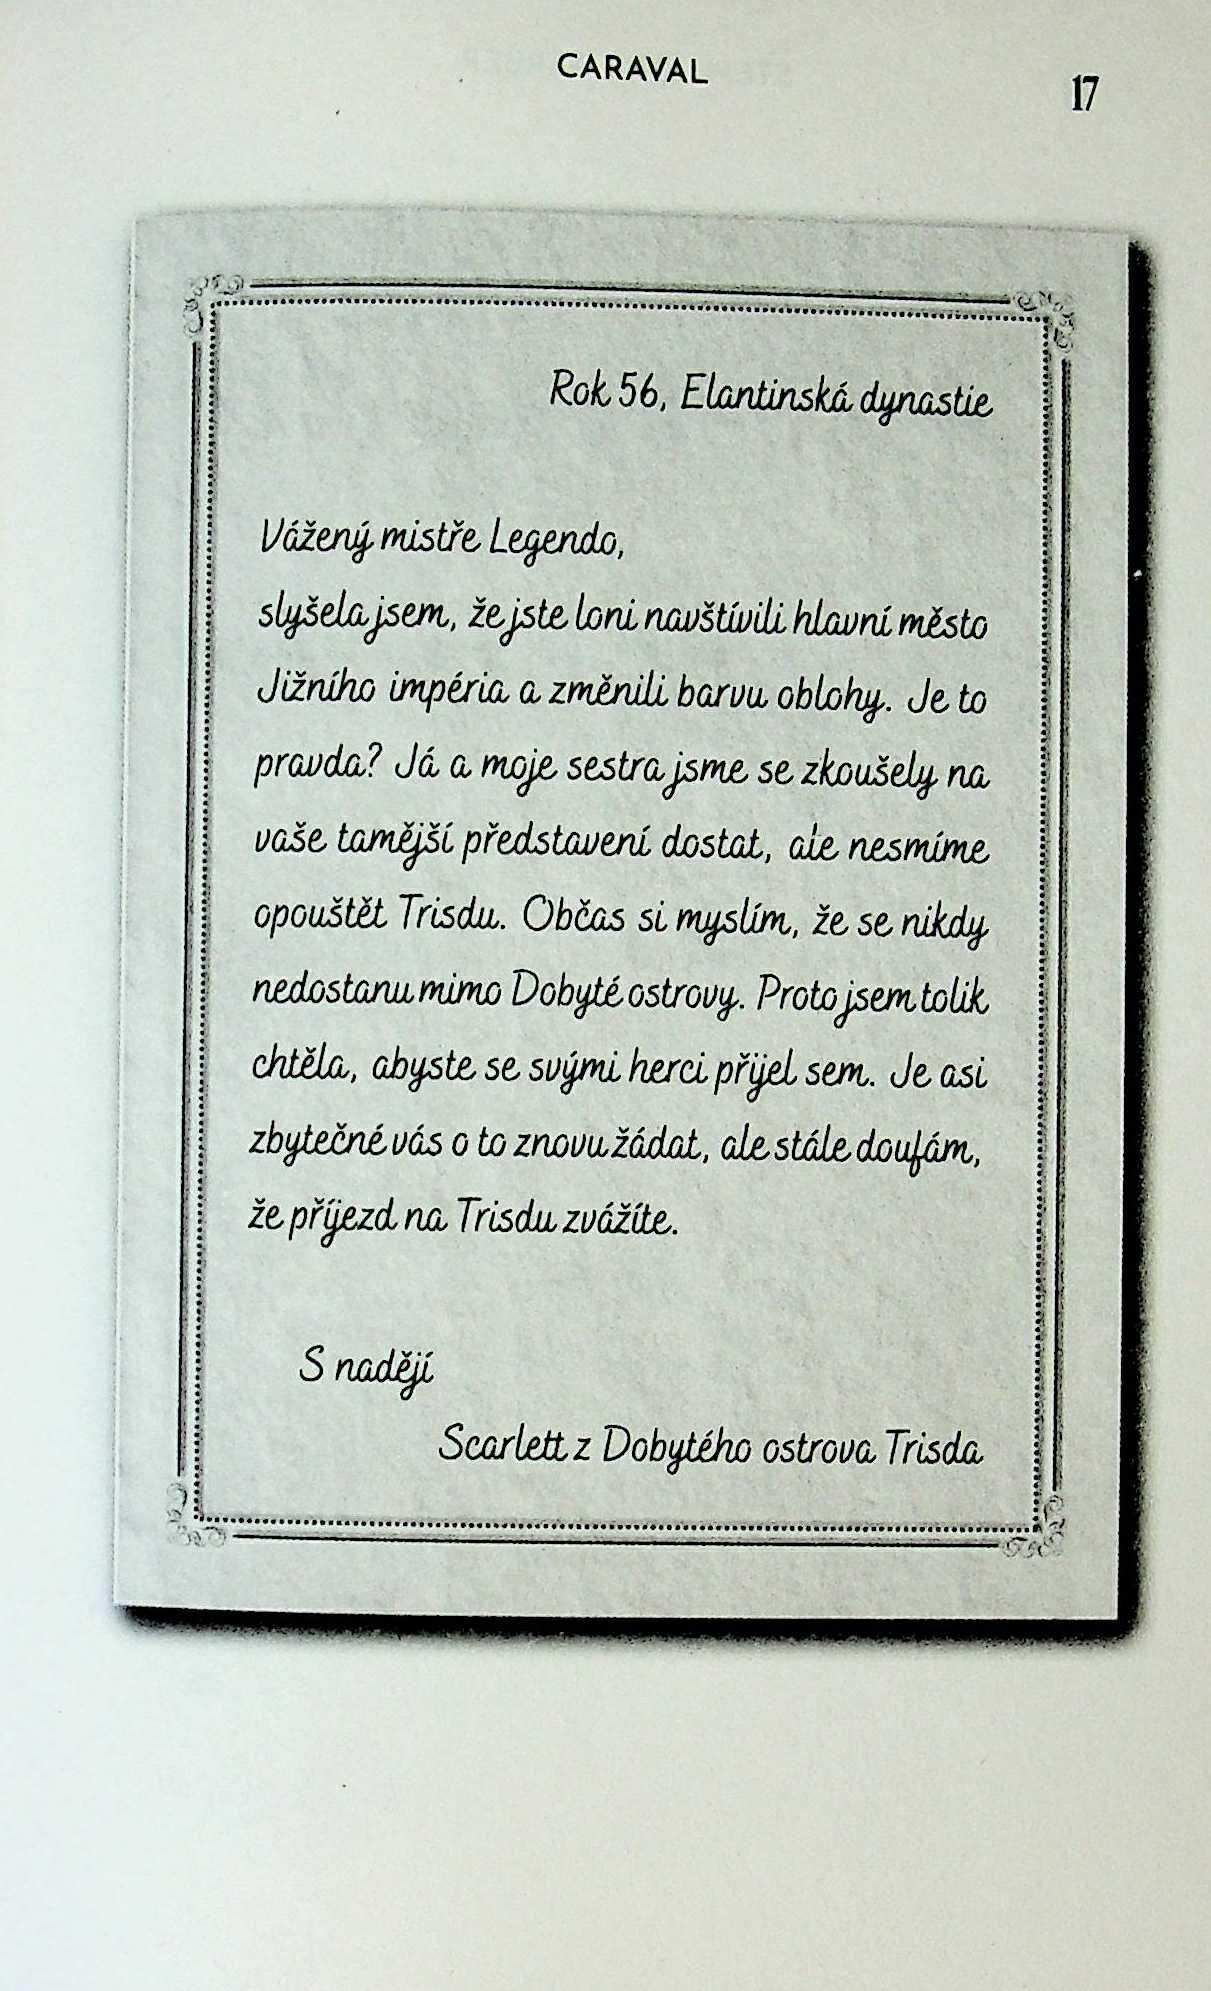 CARAVAL
17
Rok 56, Elantinská dynastie
Vážený mistře Legendo,
slyšela jsem, že jste loni navštívili hlavní město
Jižního impéria a změnili barvu oblohy. Je to
pravda? Já a moje sestra jsme se zkoušely na
vaše tamější představení dostat, ale nesmíme
opouštět Trisdu. Občas si myslím, že se nikdy
nedostanu mimo Dobyté ostrovy. Proto jsem tolik
chtěla, abyste se svými herci přijel sem. Je asi
zbytečné vás o to znovu žádat, ale stále doufám,
že příjezd na Trisdu zvážíte.
S nadějí
Scarlett z Dobytého ostrova Trisda